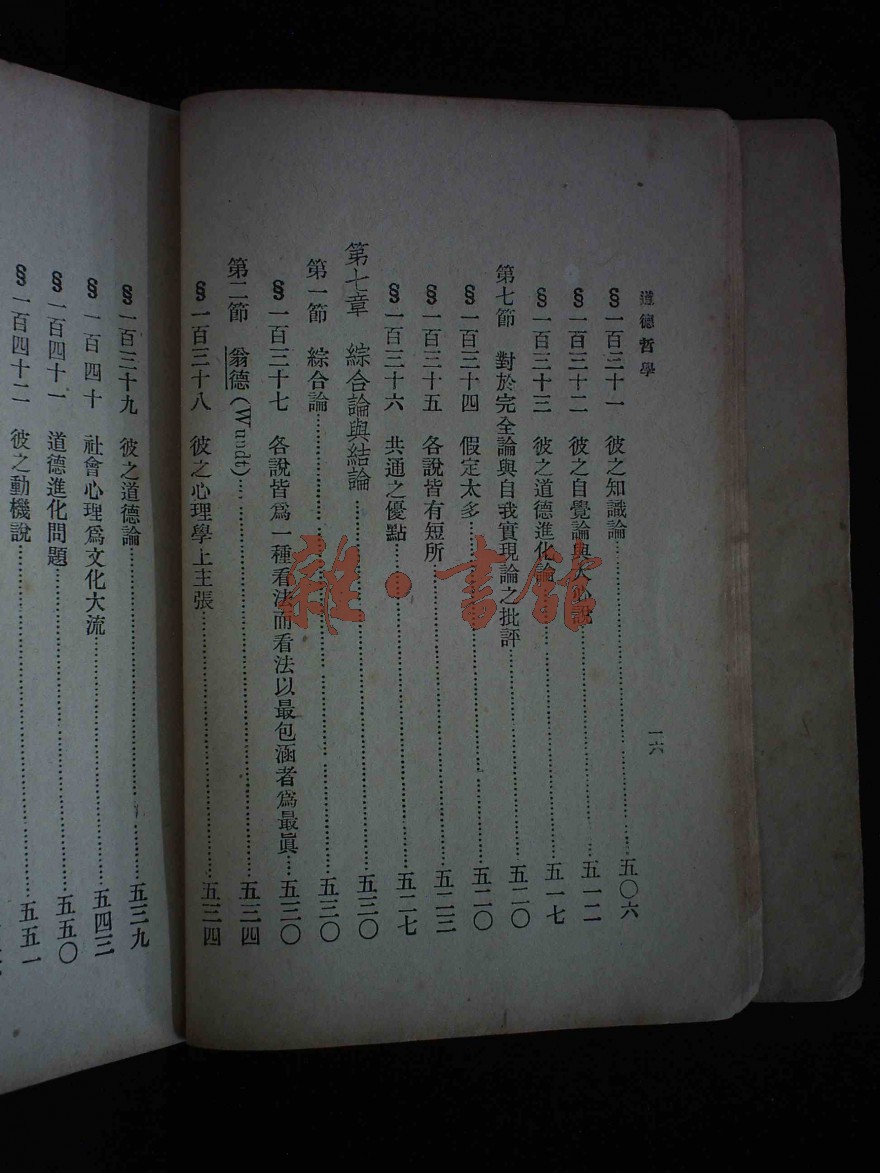 道德哲學
一六
§一百三十一 彼之知識論……五〇六
§一百三十二 彼之自覺論與大心說……五一二
§一百三十三 彼之道德進化論……五一七
第七節 對於完全論與自我實現論之批評……五二〇
§一百三十四 假定太多……五二〇
§一百三十五 各說皆有短所……五二三
§一百三十六 共通之優點……五二七
第七章 綜合論與結論……五三〇
第一節 綜合論……五三〇
§一百三十七 各說皆爲一種看法而看法以最包涵者爲最眞……五三〇
第二節 翁德(Wundt)……五三四
§一百三十八 彼之心理學上主張……五三四
§一百三十九 彼之道德論……五三九
§一百四十 社會心理爲文化大流……五四三
§一百四十一 道德進化問題……五五〇
§一百四十二 彼之動機說……五五一
雜·書館